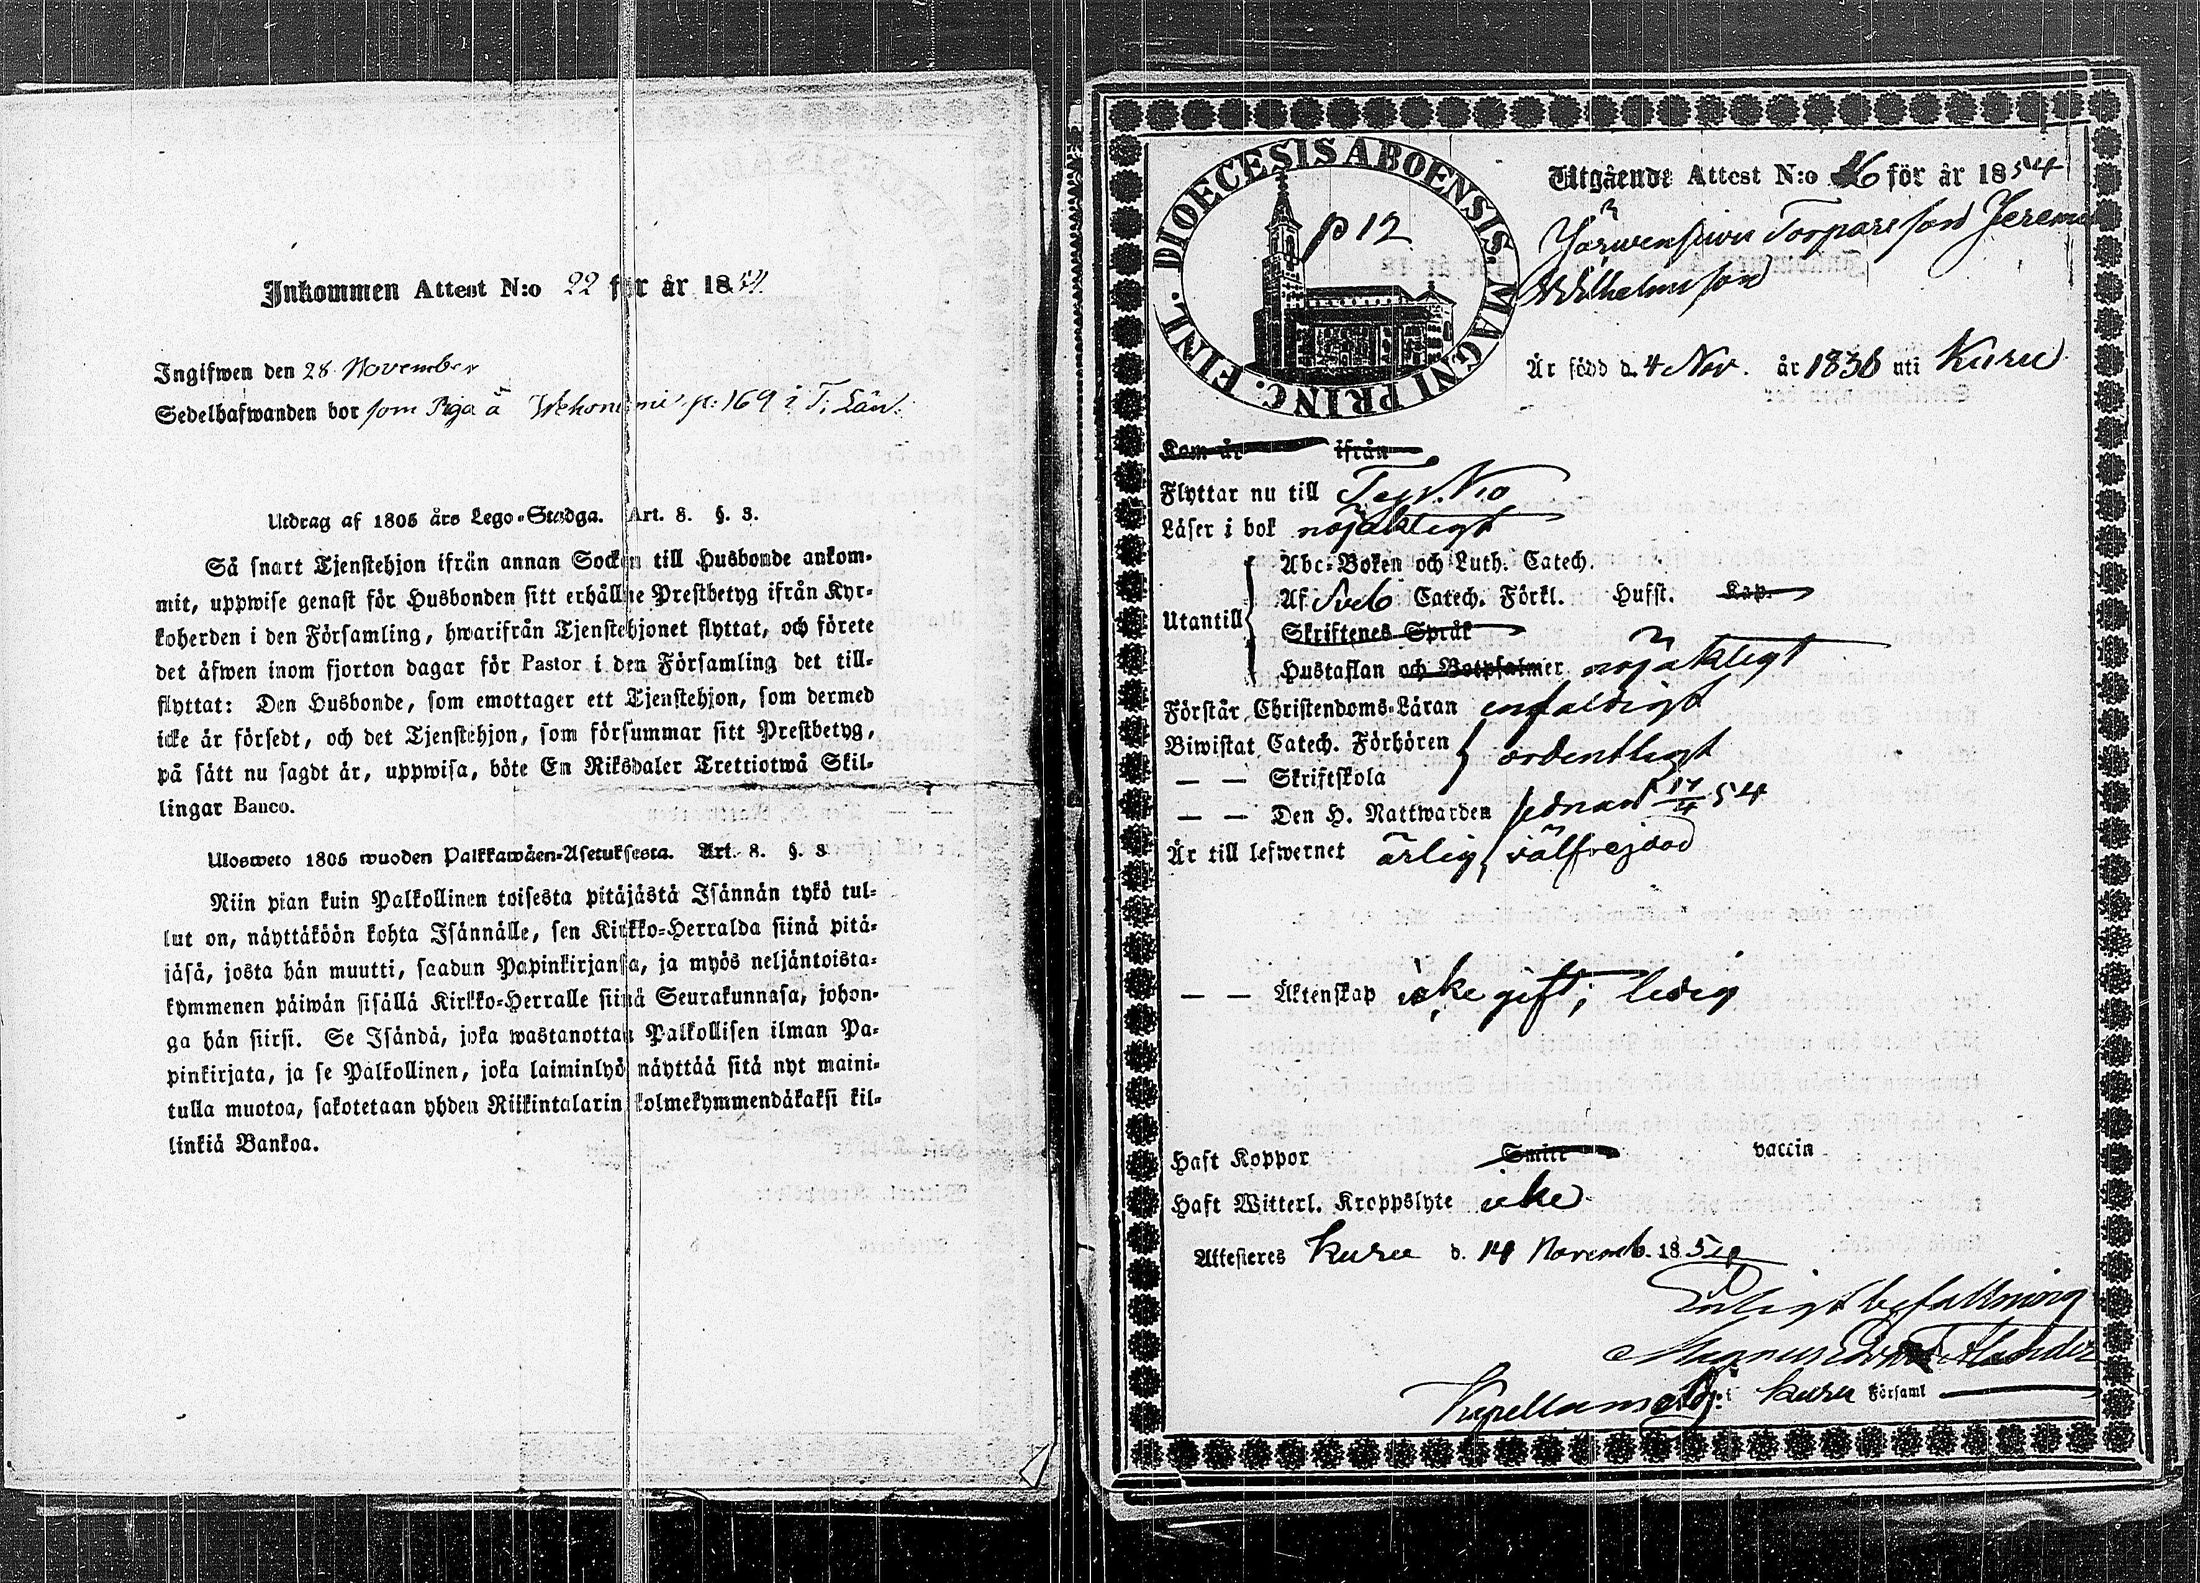 Inkommen Attest N:o 22 för år 1854.
Ingifwen den 28 November
Sedelhafwanden bor som Piga å p: 169 i T. Län.
Utdrag af 1805 års Lego-Stadga. Art. 8. §. 3.
Så snart Tjenstehjon ifrån annan Socken till Husbonde ankom-
mit, uppwise genast för Husbonden sitt erhållne Prestbetyg ifrån Kyr-
koherden i den Församling, hwarifrån Tjenstehjonet flyttat, och förete
det äfwen inom fjorton dagar för Pastor i den Församling det till-
flyttat: Den Husbonde, som emottager ett Tjenstehjon, som dermed
icke är försedt, och det Tjenstehjon, som försummar sitt Prestbetyg,
på sätt nu sagdt är, uppwisa, böte En Riksdaler Trettiotwå Skil-
lingar Banco.
Ulosweto 1805 wuoden Palkkawäen-Asetuksesta. Art. 8. §. 3
Niin pian kuin Palkollinen toisesta pitäjästä Isännän tykö tul-
lut on, näyttäköön kohta Isännälle, sen Kirkko-Herralda siinä pitä-
jäsä, josta hän muutti, saadun Papinkirjansa, ja myös neljäntoista-
kymmenen päiwän sisällä Kirkko-Herralle siinä Seurakunnasa, johon-
ga hän siirsi. Se Isändä, joka wastanottaa Palkollisen ilman Pa-
pinkirjata, ja se Palkollinen, joka laiminlyö näyttää sitä nyt maini-
tulla muotoa, sakotetaan yhden Riikintalarin kolmekymmendäkaksi kil-
linkiä Bankoa.
DIOECESIS ABOENSIS. MAGNI PRINC. FINL.
p 12
Utgående Attest N:o 16 för år 1854
Torpareson Jeremias
Wilhelmsson
Är född d. 4 Nov. år 1836 uti Kuru
Kom år ifrån
Flyttar nu till
Läser i bok nöjaktigt
Utantill
Abc-Boken och Luth. Catech.
Af Sveb Catech. Förkl. Hufst. Kap.
Skriftenes Språk
Hustaflan och Botpsalmer nöjaktigt
Förstår Christendoms-Läran enfaldigt
Biwistat Catech. Förhören
— — Skriftskola ordentligt
— — Den H. Nattwarden sednast 17/4 54
Är till lefwernet ärlig, välfrejdad
— — Äktenskap icke gift; ledig
Haft Koppor Smitt vaccin
Haft Witterl. Kroppslyte icke
Attesteres Kuru d. 14 Novemb. 1854
Enligt befallning
Magnus Edvard Alander
Kapellans adj: i Kuru Församl